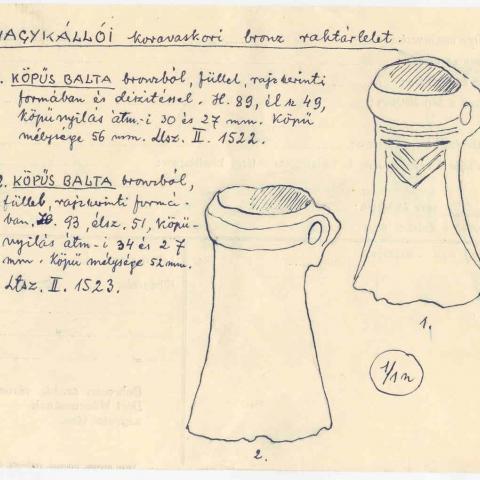 NAGYKÁLLÓI koravaskori bronz raktárlelet.
1. KÖPŰS BALTA bronzból, füllel, rajzszerinti
formában és díszítéssel. H. 89, él sz 49,
köpünyilás átm.-i 30 és 27 mm. Köpü
mélysége 56 mm. Ltsz. II. 1522.
2. KÖPŰS BALTA bronzból,
füllel, rajzszerinti formá-
ban. H. 93, élsz. 51, köpü-
nyilás átm-i 34 és 27
mm. Köpü mélysége 52 mm.
Ltsz. II. 1523.
1.
1/1 n
2.